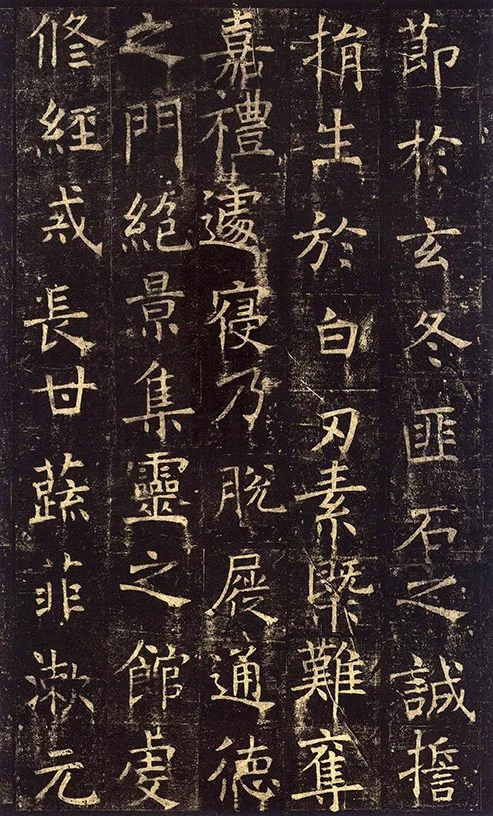 節於玄冬匪石之誠㨪
捐生於白刃素槩難奪
嘉禮遽寢乃脫屣通德
之門絶景集靈之館虔
修經戒長甘蔬菲漱元